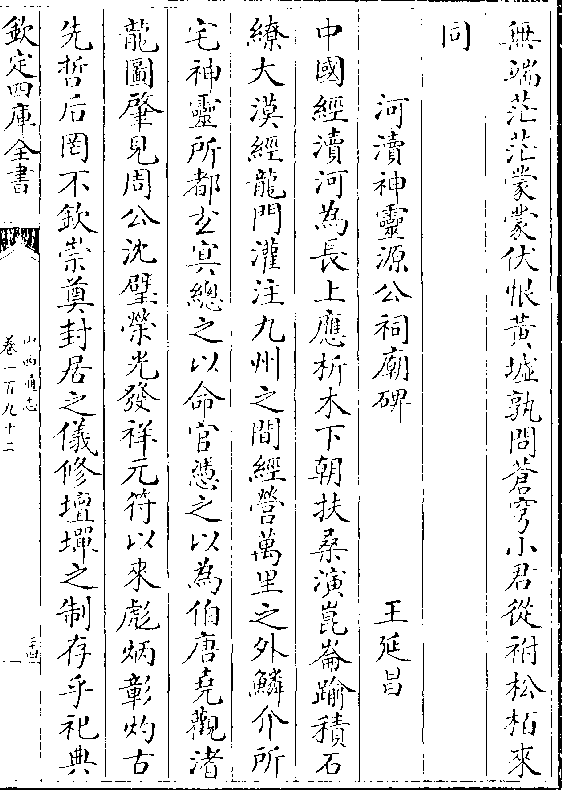 無端茫茫蒙蒙伏恨黃墟孰問蒼穹小君從祔松栢來
同
河瀆神靈源公祠廟碑　　王延昌
中國經瀆河為長上應析木下朝扶桑演崑崙踰積石
繚大漠經龍門灌注九州之間經營萬里之外鱗介所
宅神靈所都玄冥總之以命官憑之以為伯唐堯觀渚
龍圖肇見周公沈璧榮光發祥元符以來彪炳彰灼古
先哲后罔不欽崇奠封居之儀修壇墠之制存乎祀典
欽定四庫全書
山西通志
卷一百九十二